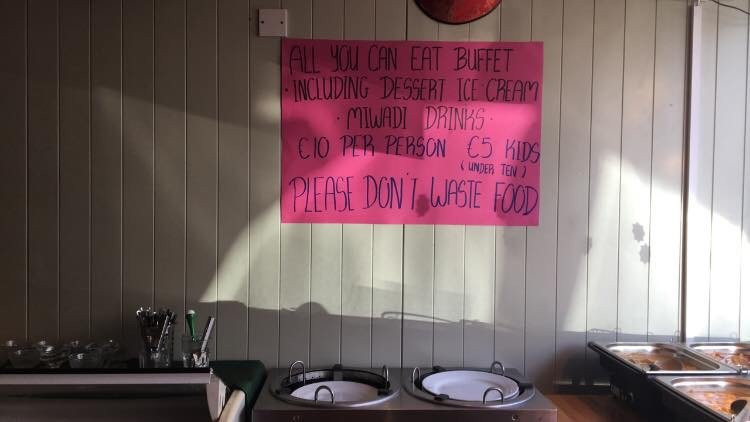 ALL YOU CAN EAT BUFFET
· INCLUDING DESSERT ICE CREAM
· MIWADI DRINKS ·
€10 PER PERSON €5 KIDS
( UNDER TEN )
PLEASE DON'T WASTE FOOD